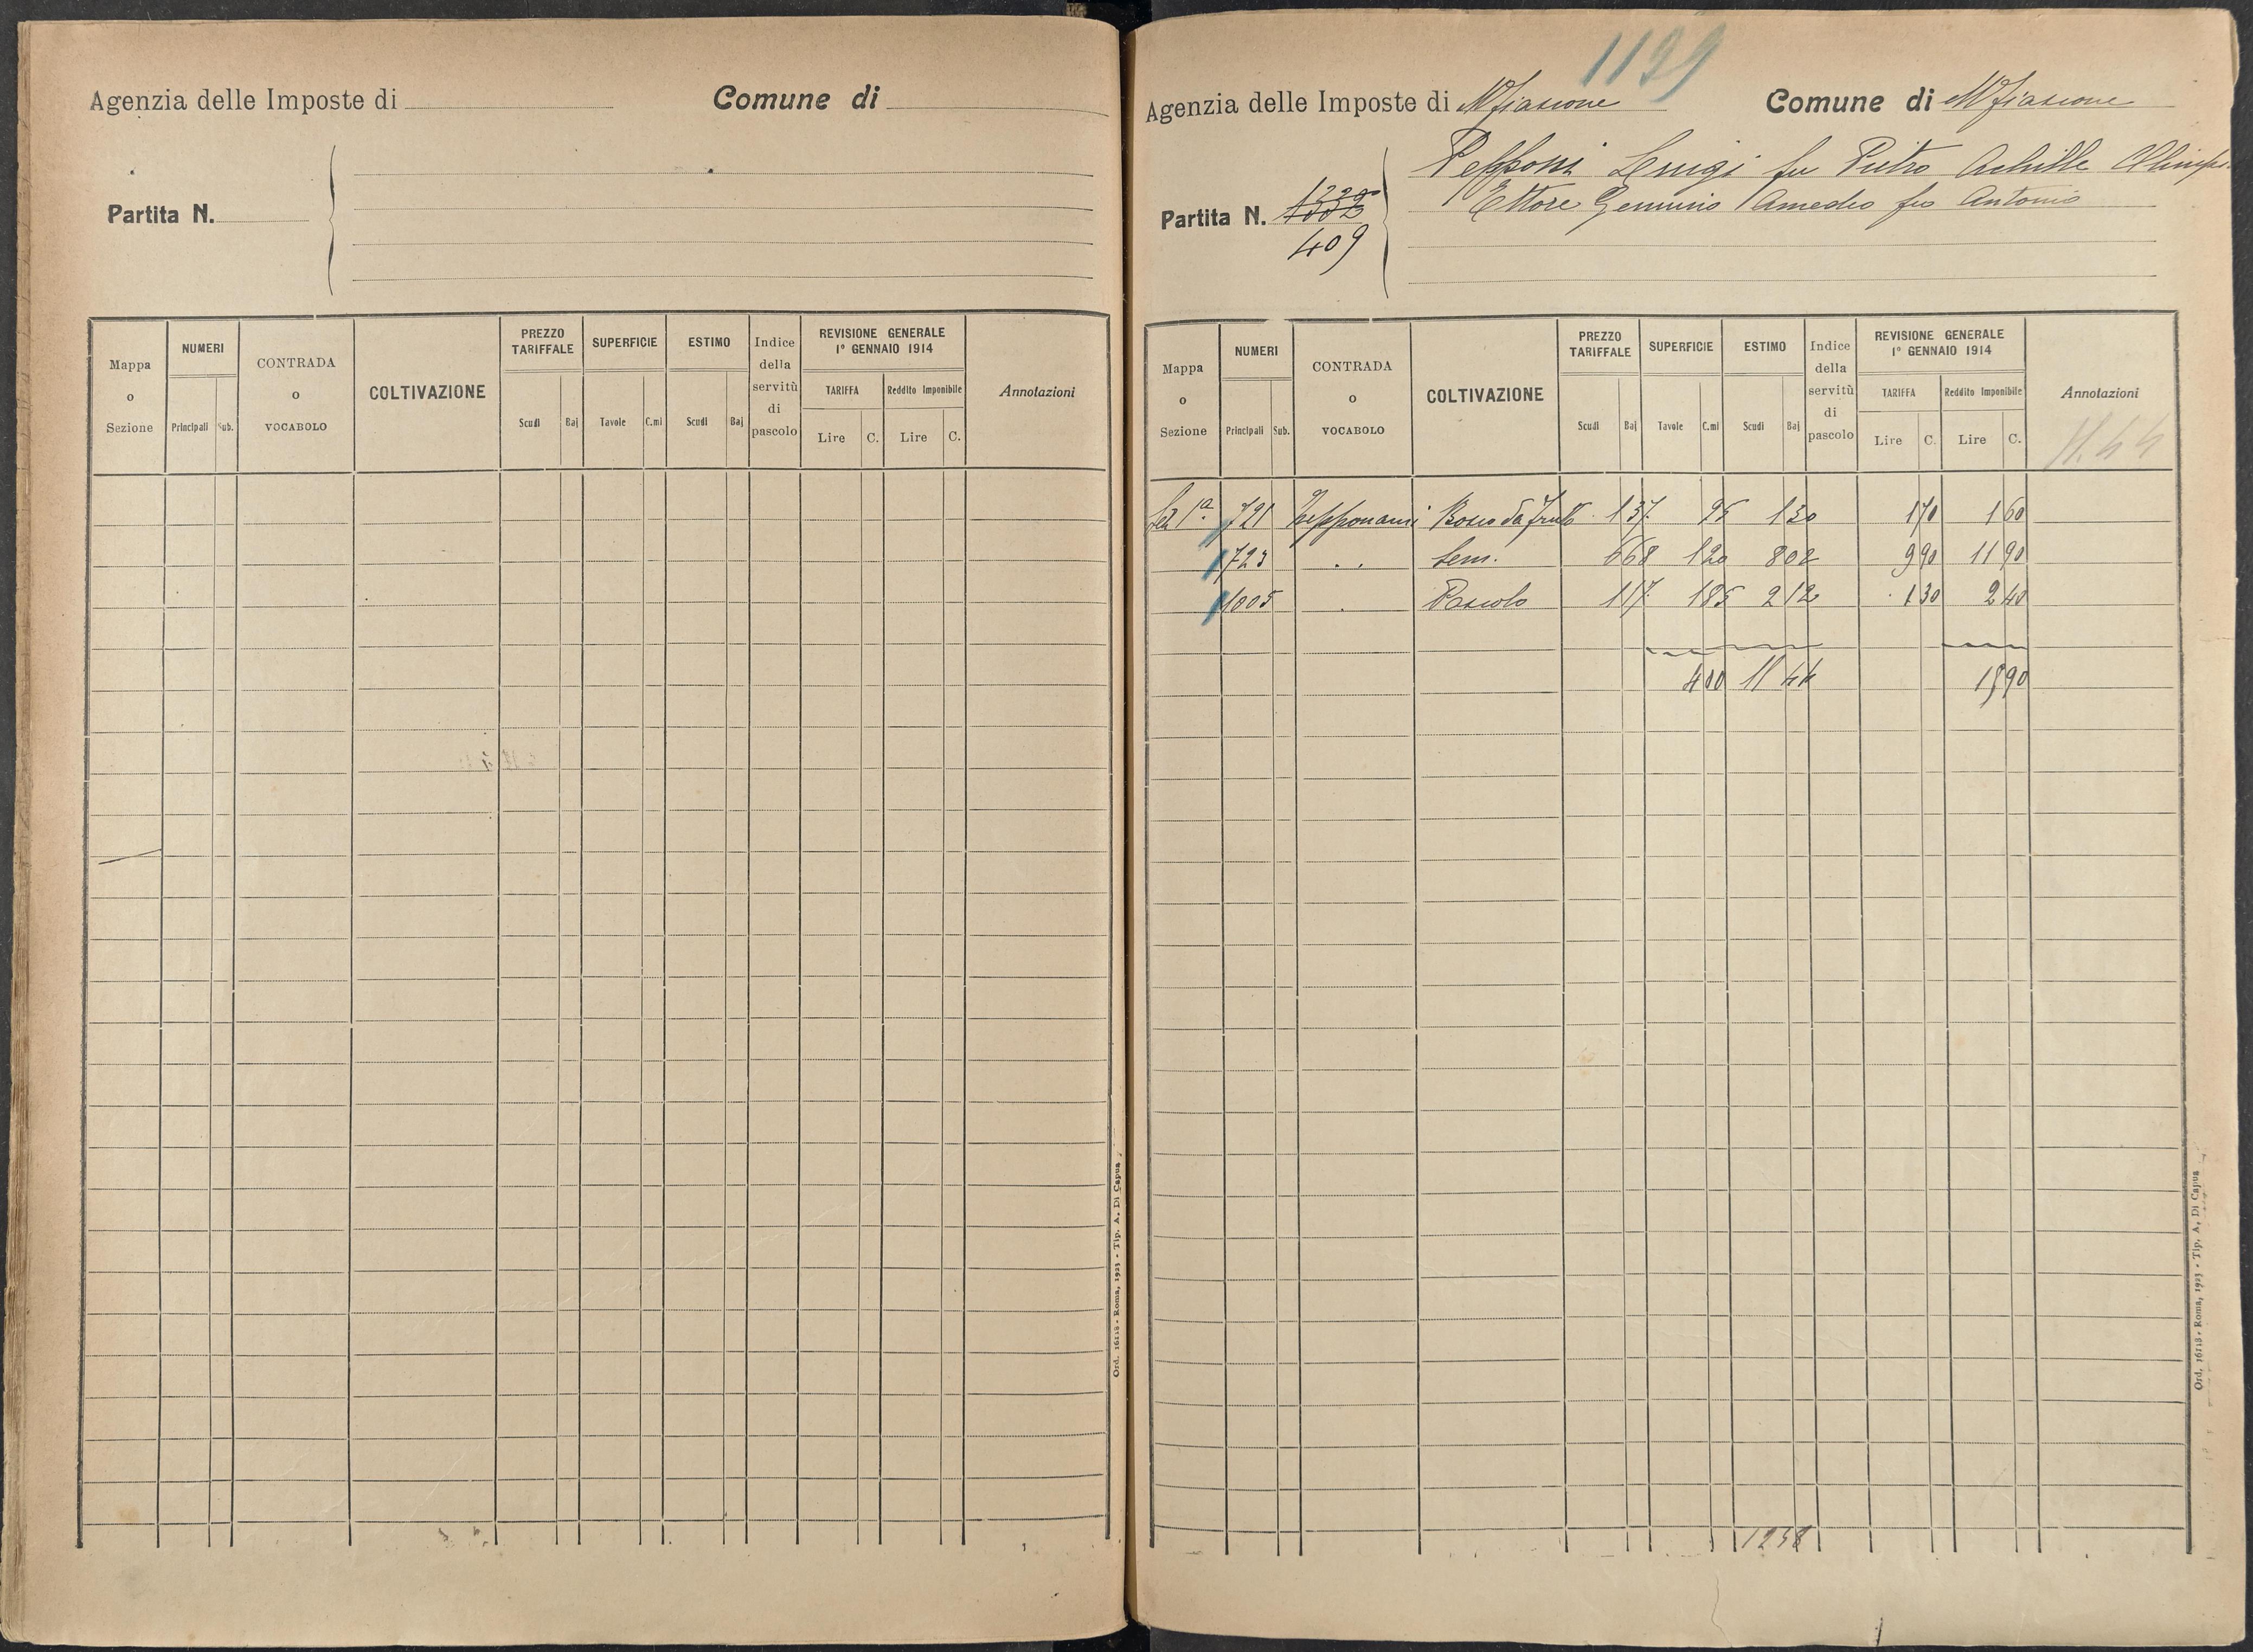 Agenzia delle Imposte di
Comune di
Partita N.
Mappa o Sezione
NUMERI
Principali
Sub.
CONTRADA o VOCABOLO
COLTIVAZIONE
PREZZO TARIFFALE
Scudi
Baj
SUPERFICIE
Tavole
C.mi
ESTIMO
Scudi
Baj
Indice della servitù di pascolo
REVISIONE GENERALE 1º GENNAIO 1914
TARIFFA
Lire
C.
Reddito Imponibile
Lire
C.
Annotazioni
Ord. 16118 - Roma, 1923 - Tip. A. Di Capua
1199
Agenzia delle Imposte di Mfiascone
Comune di Mfiascone
Pepponi Luigi fu Pietro Achille
Ettore Genuino Amedeo fu Antonio
Partita N.
409
Mappa o Sezione
NUMERI
Principali
Sub.
CONTRADA o VOCABOLO
COLTIVAZIONE
PREZZO TARIFFALE
Scudi
Baj
SUPERFICIE
Tavole
C.mi
ESTIMO
Scudi
Baj
Indice della servitù di pascolo
REVISIONE GENERALE 1º GENNAIO 1914
TARIFFA
Lire
C.
Reddito Imponibile
Lire
C.
Annotazioni
11.44
Sez 1ª 721 Bosco da frutto 137 95 130 170 160
723 . . Sem. 668 120 802 990 1190
1005 . Pascolo 117 185 212 130 240
400 1144 1590
1258
Ord. 16118 - Roma, 1923 - Tip. A. Di Capua